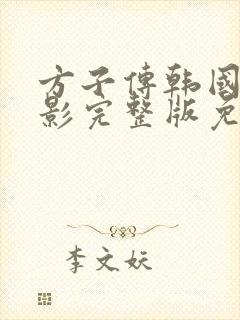 方子傳韩國
影完整版免
李文妖